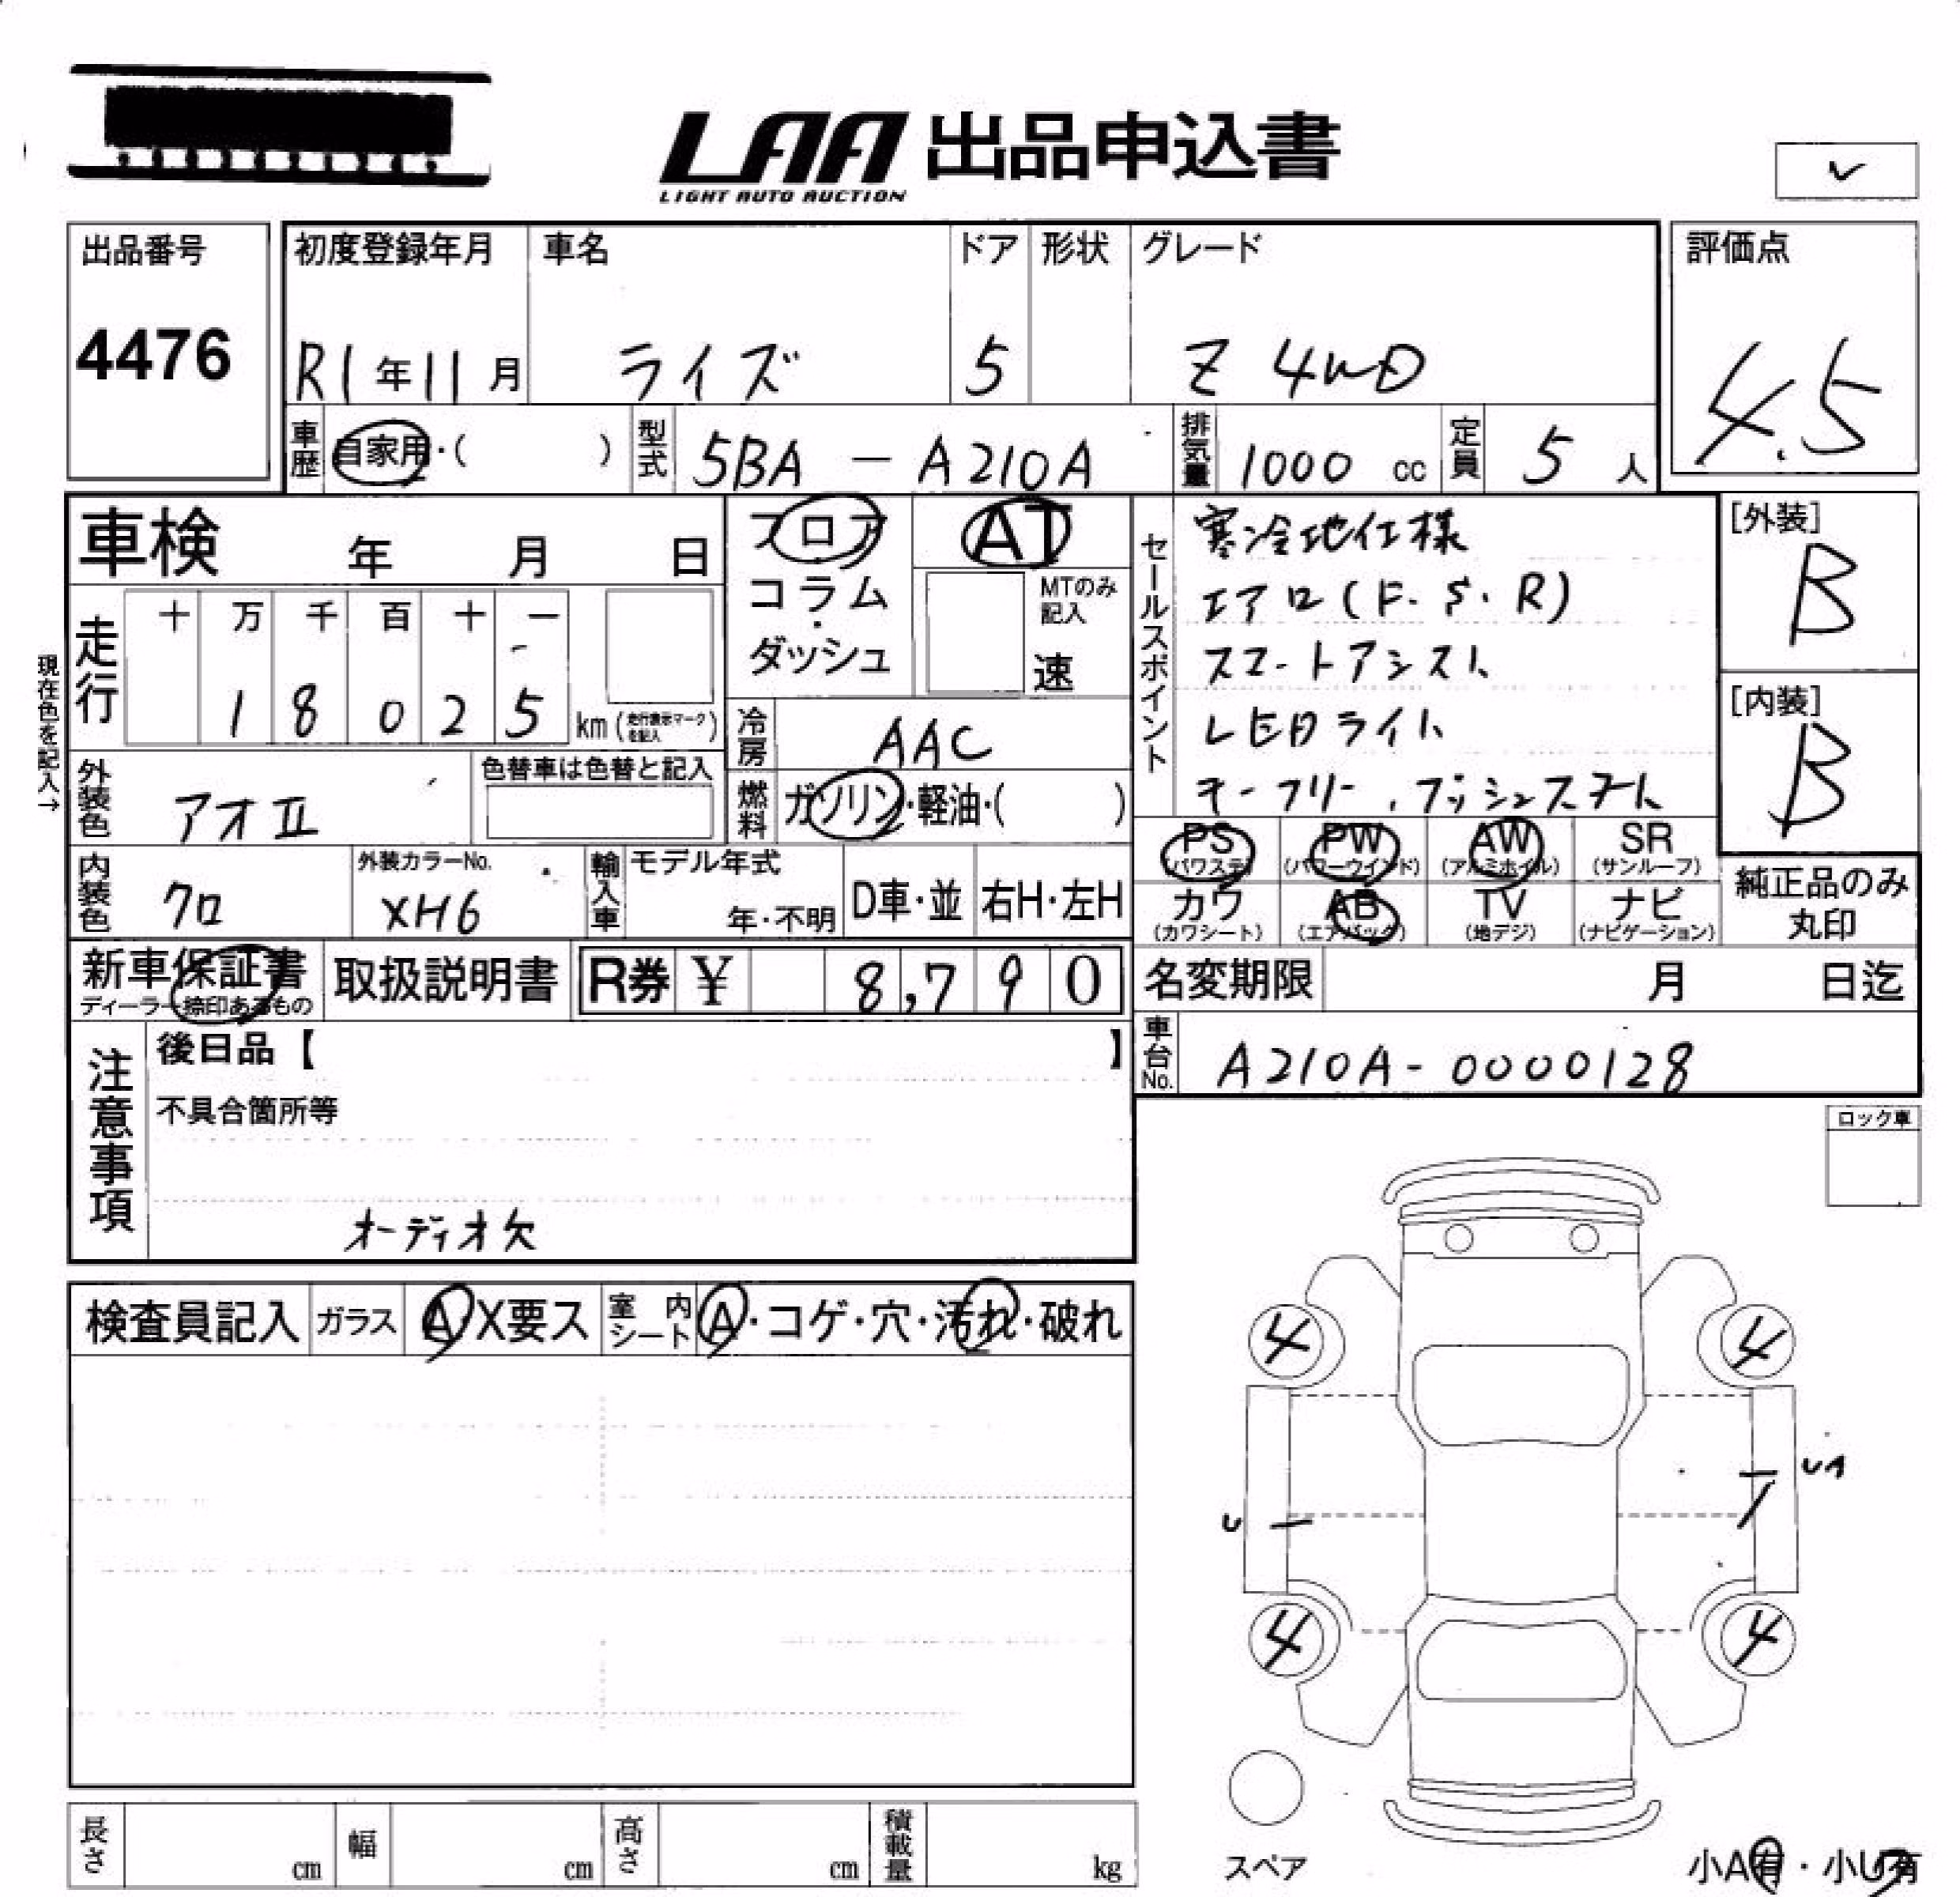 LAA 出品申込書
LIGHT AUTO AUCTION
✓
出品番号
4476
初度登録年月
R1年11月
車名
ライズ
ドア
5
形状
グレード
Z 4WD
評価点
4.5
車歴
自家用・( )
型式
5BA - A210A
排気量
1000 cc
定員
5 人
車検 年 月 日
現在色を記入→
走行
十 万 千 百 十 一
1 8 0 2 5
km (走行表示マークを記入)
フロア・コラム・ダッシュ
AT
MTのみ記入
速
冷房
AAC
燃料
ガソリン・軽油・( )
外装色
アオⅡ
色替車は色替と記入
内装色
クロ
外装カラーNo.
XH6
輸入車
モデル年式
年・不明
D車・並
右H・左H
セールスポイント
寒冷地仕様
エアロ(F.S.R)
スマートアシスト
LEDライト
キーフリー,プッシュスタート
[外装]
B
[内装]
B
PS
(パワステ)
PW
(パワーウインド)
AW
(アルミホイル)
SR
(サンルーフ)
カワ
(カワシート)
AB
(エアバック)
TV
(地デジ)
ナビ
(ナビゲーション)
純正品のみ
丸印
新車保証書
ディーラー捺印あるもの
取扱説明書
R券 ¥ 8,790
名変期限 月 日迄
車台No.
A210A-0000128
注意事項
後日品【 】
不具合箇所等
オーディオ欠
ロック車
検査員記入
ガラス
A・X要ス
室内シート
A・コゲ・穴・汚れ・破れ
4
4
UA
U
4
4
スペア
長さ cm
幅 cm
高さ cm
積載量 kg
小A有・小U有